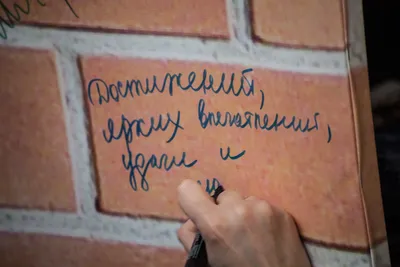 Достижений,
ярких впечатлений,
удачи и